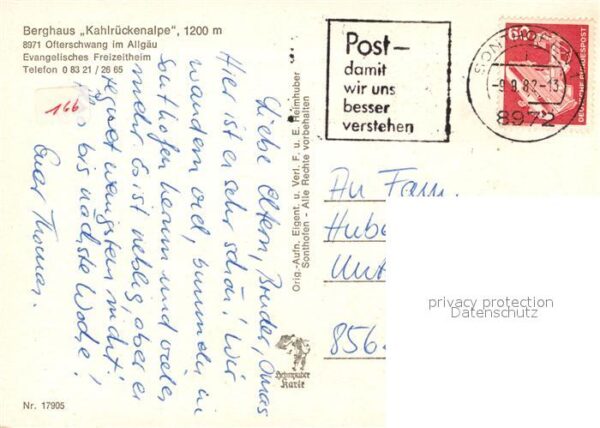 Berghaus „Kahlrückenalpe", 1200 m
8971 Ofterschwang im Allgäu
Evangelisches Freizeitheim
Telefon 0 83 21 / 26 65
166
Liebe Eltern, Bruder, Omas
Hier ist es sehr schön! Wir
wandern viel, bummeln in
Sonthofen herum und vieles
mehr. Es ist neblig, aber es
regnet wenigstens nicht!
bis nächste Woche!
Euer Thomas.
Nr. 17905
Orig.-Aufn. Eigent. u. Verl. F. u. E. Reimhuber
Sonthofen - Alle Rechte vorbehalten
Karte
Post–
damit
wir uns
besser
verstehen
-9.8.82-13
8972
60
DEUTSCHE BUNDESPOST
An Fam.
Hube
856
privacy protection
Datenschutz